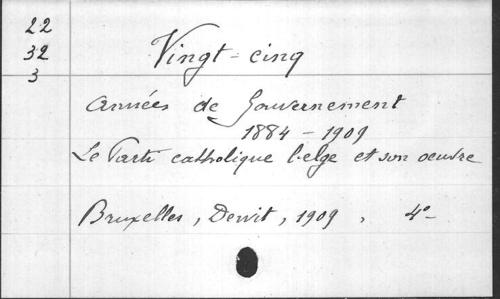 22
32
3
Vingt-cinq
années de Gouvernement
1884 - 1909
Le Parti catholique belge et son oeuvre
Bruxelles, Dewit, 1909, 4°